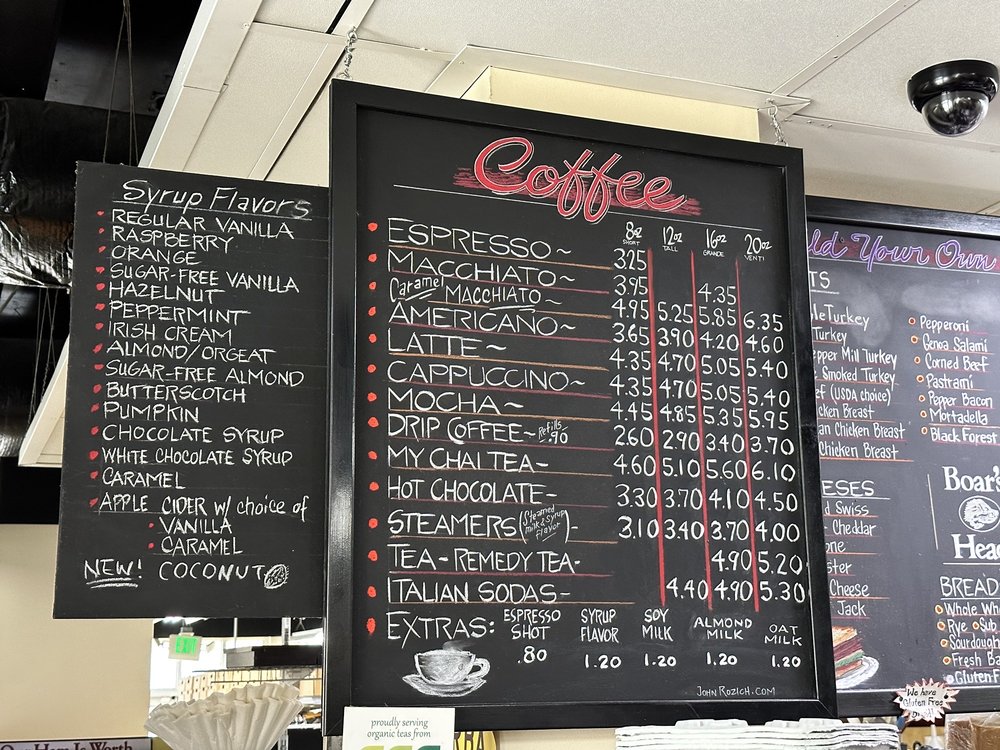 Syrup Flavors
REGULAR VANILLA
RASPBERRY
ORANGE
SUGAR-FREE VANILLA
HAZELNUT
PEPPERMINT
IRISH CREAM
ALMOND/ORGEAT
SUGAR-FREE ALMOND
BUTTERSCOTCH
PUMPKIN
CHOCOLATE SYRUP
WHITE CHOCOLATE SYRUP
CARAMEL
APPLE CIDER W/ choice of
VANILLA
CARAMEL
NEW! COCONUT
Coffee
8oz 12oz 16oz 20oz
SHORT TALL GRANDE VENTI
ESPRESSO~ 3.25
MACCHIATO~ 3.95 4.35
Caramel MACCHIATO~ 4.95 5.25 5.85 6.35
AMERICANO~ 3.65 3.90 4.20 4.60
LATTE~ 4.35 4.70 5.05 5.40
CAPPUCCINO~ 4.35 4.70 5.05 5.40
MOCHA~ 4.45 4.85 5.35 5.95
DRIP COFFEE~ Refills .90 2.60 2.90 3.40 3.70
MY CHAI TEA- 4.60 5.10 5.60 6.10
HOT CHOCOLATE- 3.30 3.70 4.10 4.50
STEAMERS (Steamed Milk & Syrup Flavor)- 3.10 3.40 3.70 4.00
TEA-REMEDY TEA- 4.90 5.20
ITALIAN SODAS- 4.40 4.90 5.30
EXTRAS: ESPRESSO SHOT .80
SYRUP FLAVOR 1.20
SOY MILK 1.20
ALMOND MILK 1.20
OAT MILK 1.20
JOHNROZICH.COM
Your Own
Turkey
Turkey
Mill Turkey
Smoked Turkey
(USDA choice)
Breast
Chicken Breast
Chicken Breast
Pepperoni
Genoa Salami
Corned Beef
Pastrami
Pepper Bacon
Mortadella
Black Forest
Swiss
Cheddar
Cheese
Jack
Boar's
Head
BREAD
Whole
Rye Sub
Sourdough
Fresh
We have
Gluten Free
Bread!
EXIT
proudly serving
organic teas from